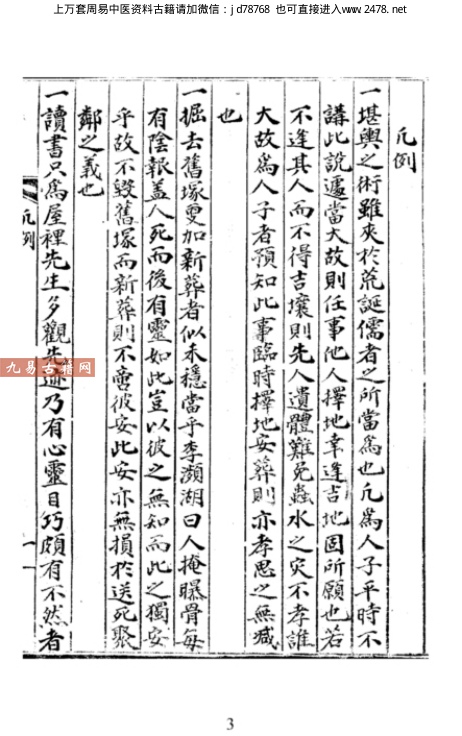 上万套周易中医资料古籍请加微信：jd78768 也可直接进入www.2478.net
凡例
一堪輿之術雖夾於荒誕儒者之所當爲也凡爲人子平時不
講此說遽當大故則任事他人擇地幸逢吉地固所願也若
不逢其人而不得吉壤則先人遺體難免蟲水之灾不孝誰
大故爲人子者預知此事臨時擇地安葬則亦孝思之無憾
也
一掘去舊塚更加新葬者似未穩當乎李瀕湖曰人掩曝骨每
有陰報盖人死而後有靈如此豈以彼之無知而此之獨安
乎故不毀舊塚而新葬則不啻彼安此安亦無損於送死聚
鄰之義也
一讀書只爲屋裡先生多觀先迹乃有心靈目巧頗有不然者
凡例
一
九易古籍网
3